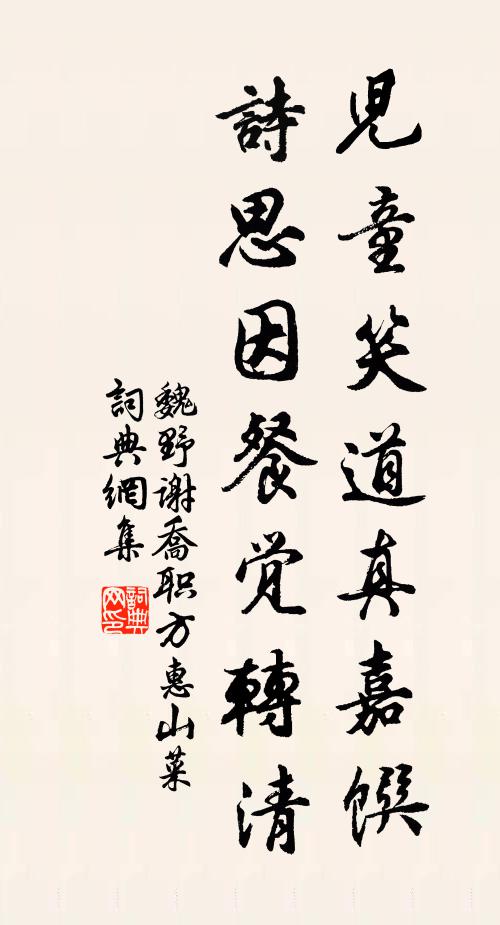 児童笑道真嘉饌
詩思因餐覚轉清
魏野谢喬职方惠山菜
詞典網集
詞典网印